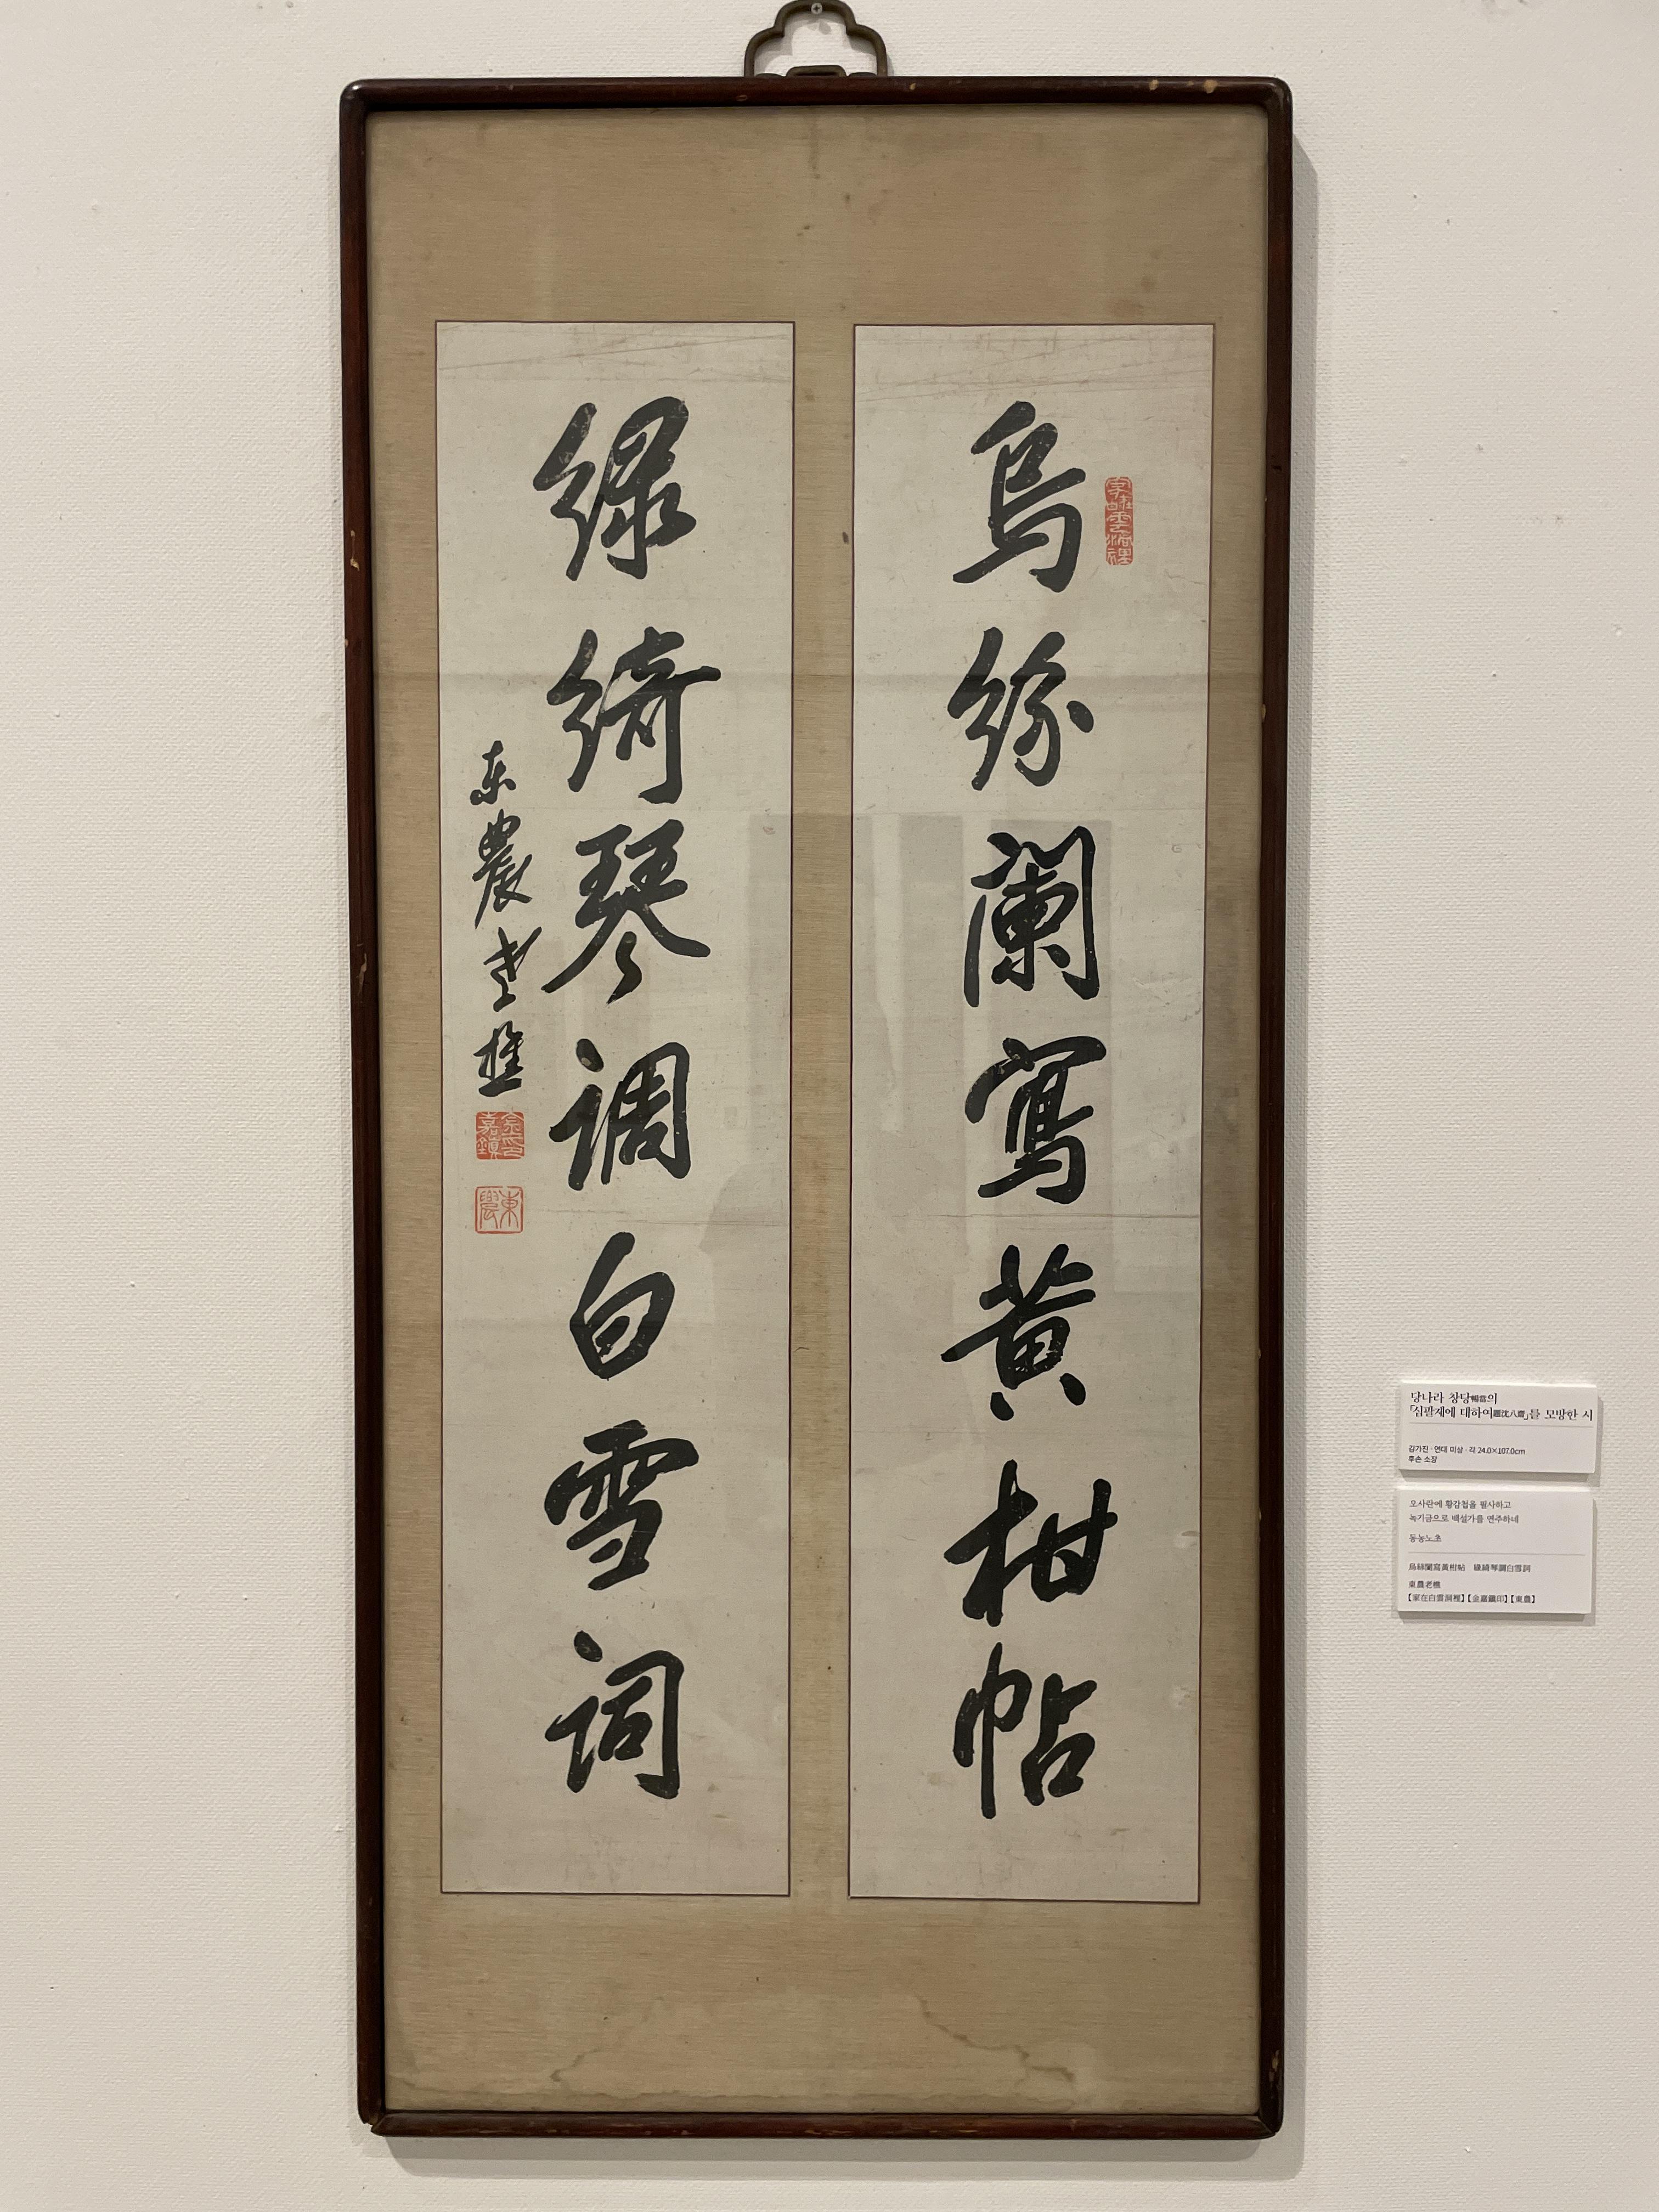 烏紛闌寫黃柑帖
家在白雲洞裡
綠綺琴調白雪詞
東農老樵
金嘉鎭印
東農
당나라 창당暢當의
「심팔제에 대하여題沈八齋」를 모방한 시
김가진 · 연대 미상 · 각 24.0×107.0cm
후손 소장
오사란에 황감첩을 필사하고
녹기금으로 백설가를 연주하네
동농노초
烏絲闌寫黃柑帖 綠綺琴調白雪詞
東農老樵
【家在白雲洞裡】【金嘉鎭印】【東農】